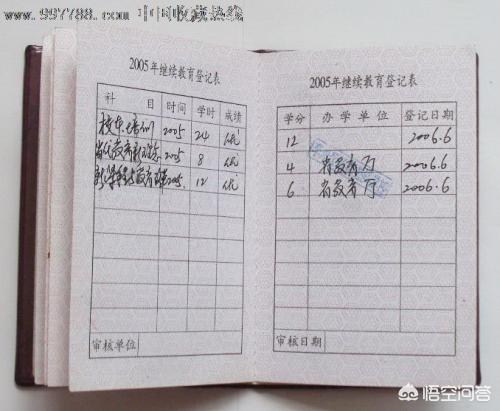 www.997788.com 中国收藏热线
2005年继续教育登记表
科 目 时间 学时 成绩
校本培训 2005 24 优
2005 8 优
新课程与教育 2005. 12 优
审核单位
2005年继续教育登记表
学分 办学单位 登记日期
12 2006.6
4 省教育厅 2006.6
6 省教育厅 2006.6
审核日期
悟空问答